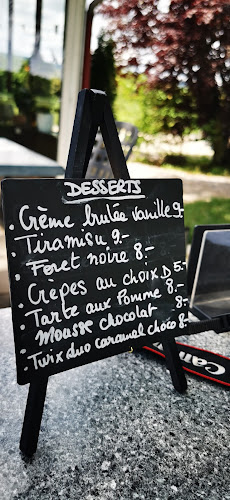 DESSERTS
. Crème brulée vanille 9.-
. Tiramisu 9.-
. Foret noire 8.-
. Crêpes au choix D 5.-
. Tarte aux Pomme 8.-
. Mousse chocolat 8.-
. Twix duo caramel choco 8.-
Can